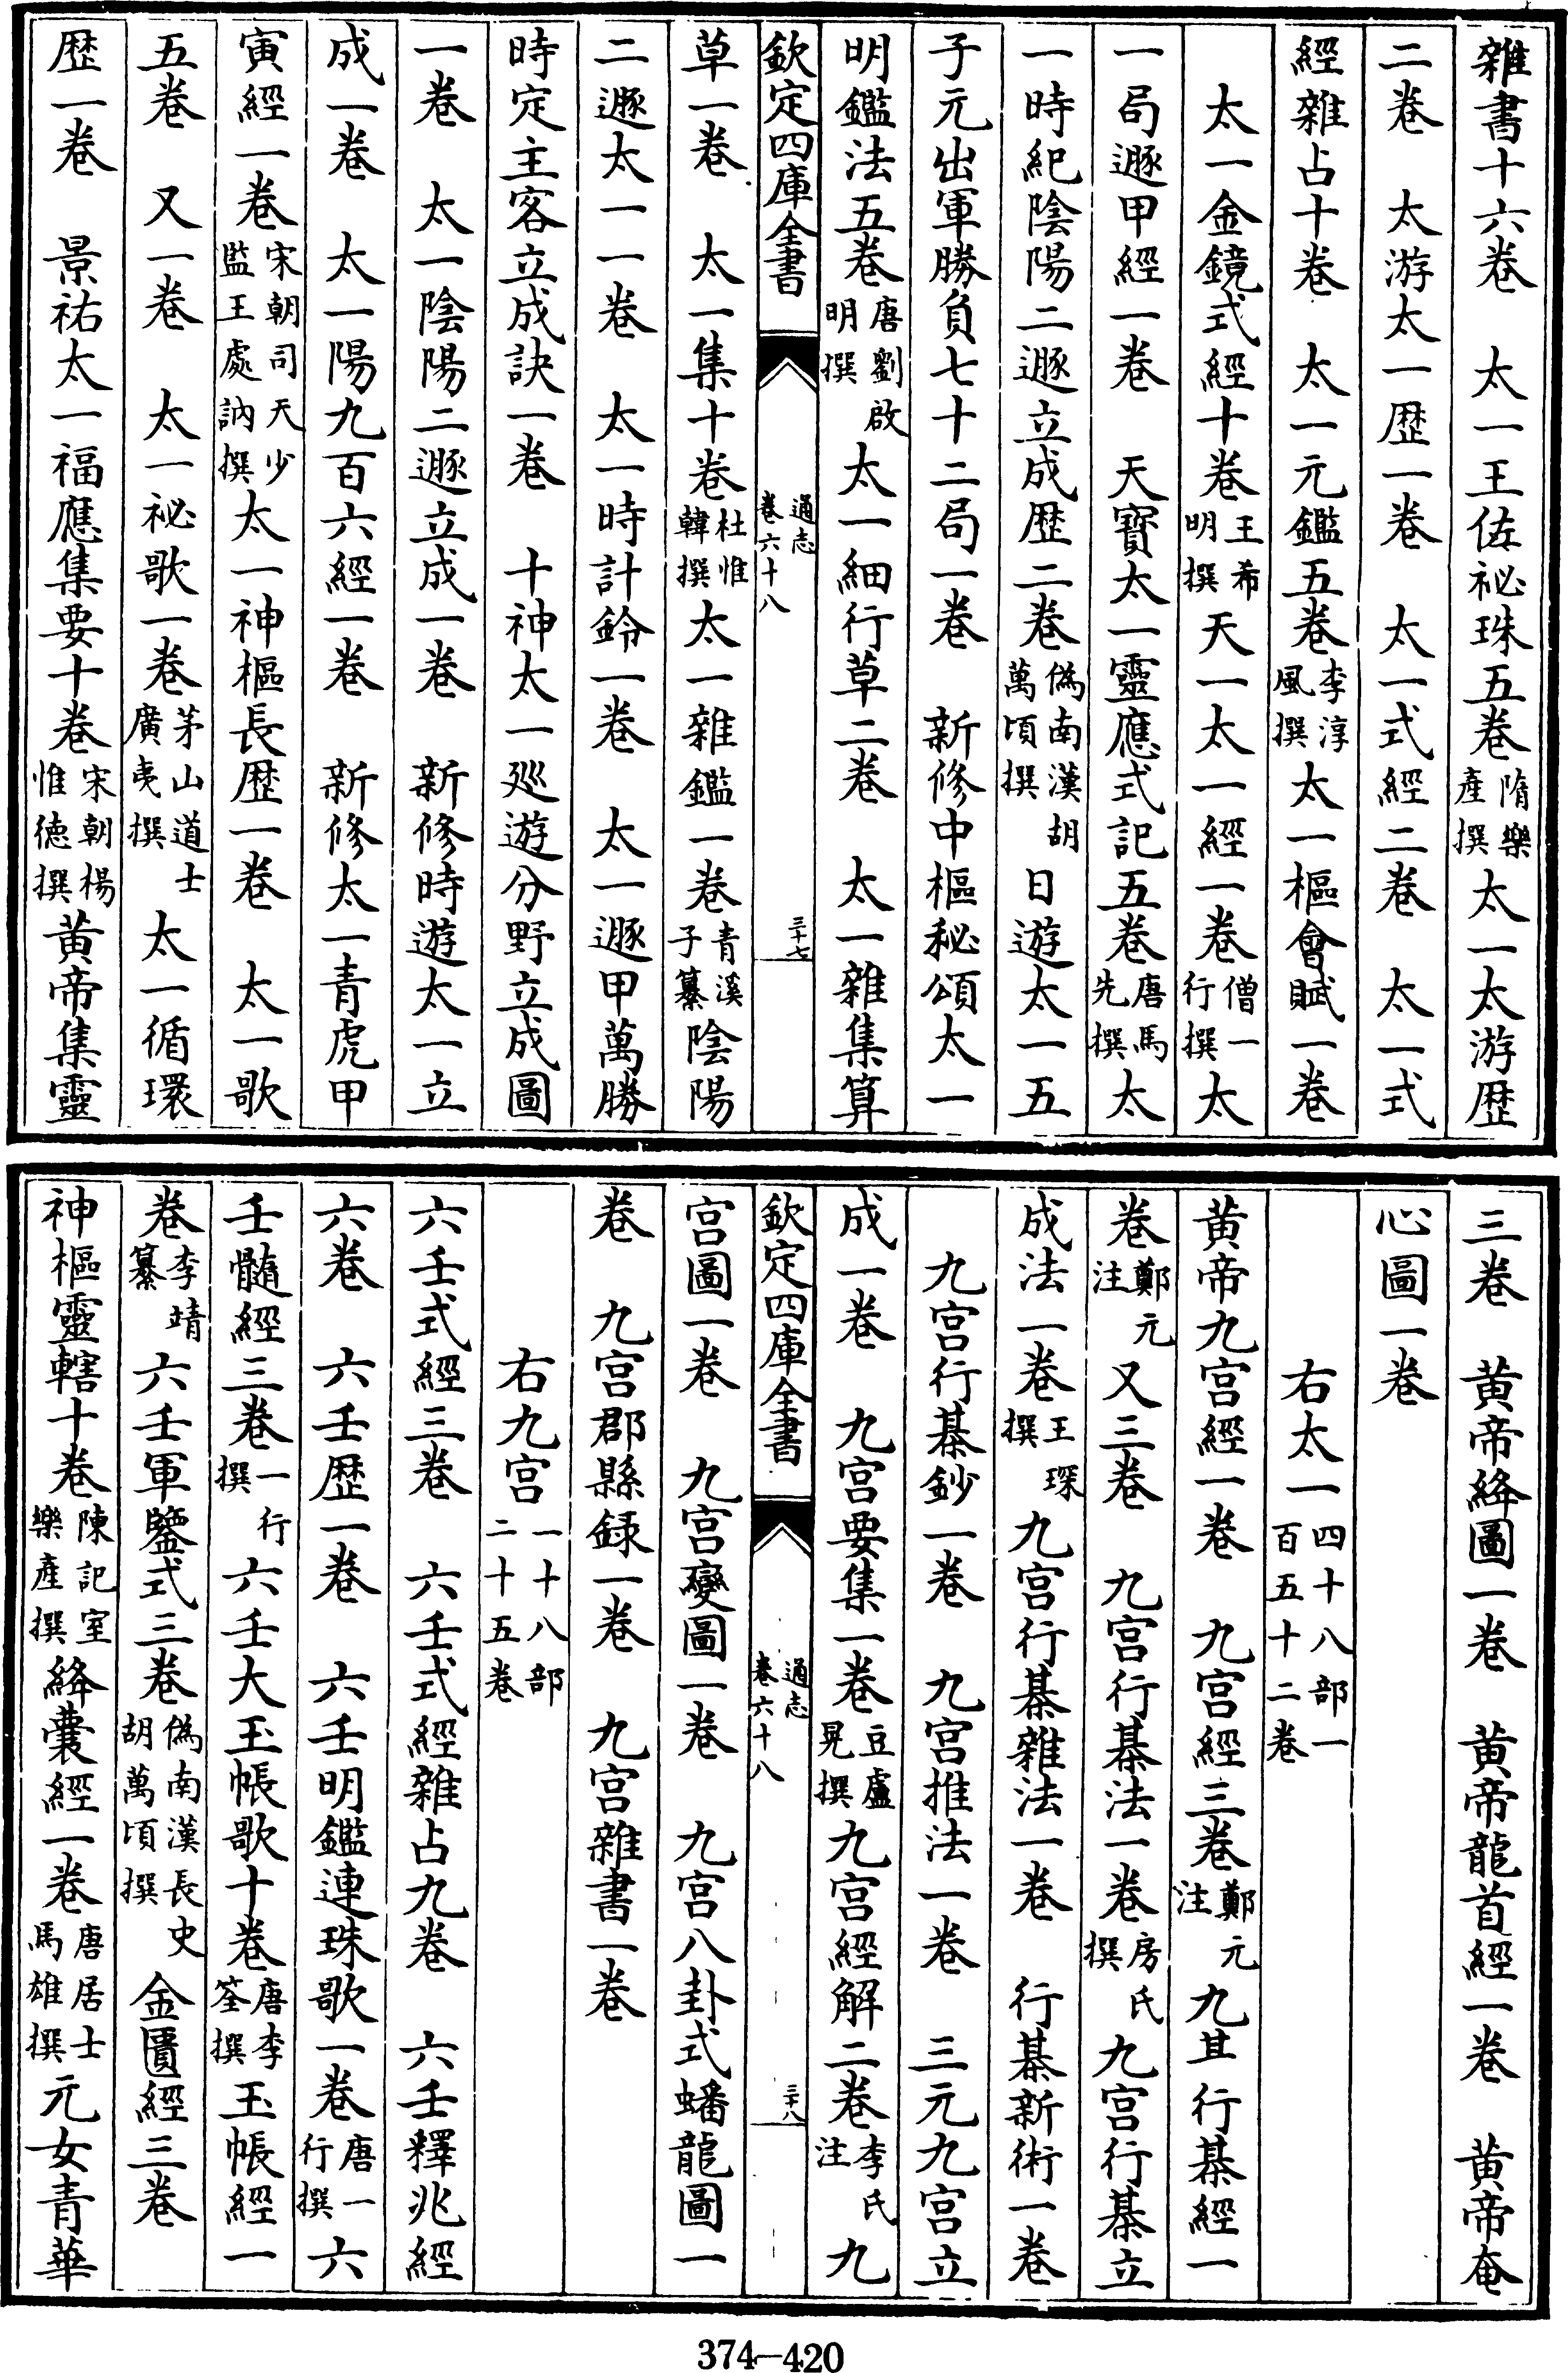 雜書十六卷　太一王佐祕珠五卷隋樂產撰太一太游歴
二卷　太游太一歴一卷　太一式經二卷　太一式
經雜占十卷　太一元鑑五卷李淳風撰太一樞會賦一卷
太一金鏡式經十卷王希明撰天一太一經一卷僧一行撰太
一局遯甲經一卷　天寶太一靈應式記五卷唐馬先撰太
一時紀陰陽二遯立成歴二卷偽南漢胡萬頃撰日遊太一五
子元出軍勝負七十二局一卷　新修中樞秘頌太一
明鑑法五卷唐劉啟明撰太一細行草二卷　太一雜集算
欽定四庫全書　通志卷六十八　三十七
草一卷　太一集十卷杜惟韓撰太一雜鑑一卷青溪子纂陰陽
二遯太一一卷　太一時計鈐一卷　太一遯甲萬勝
時定主客立成訣一卷　十神太一廵遊分野立成圖
一卷　太一陰陽二遯立成一卷　新修時遊太一立
成一卷　太一陽九百六經一卷　新修太一青虎甲
寅經一卷宋朝司天少監王處訥撰太一神樞長歴一卷　太一歌
五卷　又一卷　太一祕歌一卷茅山道士廣夷撰太一循環
歴一卷　景祐太一福應集要十卷宋朝楊惟德撰黃帝集靈
三卷　黃帝絳圖一卷　黃帝龍首經一卷　黃帝奄
心圖一卷
右太一四十八部一百五十二卷
黃帝九宮經一卷　九宮經三卷鄭元注九其行棊經一
卷鄭元注又三卷　九宮行棊法一卷房氏撰九宮行棊立
成法一卷王琛撰九宮行棊雜法一卷　行棊新術一卷
九宮行棊鈔一卷　九宮推法一卷　三元九宮立
成一卷　九宮要集一卷豆盧晃撰九宮經解二卷李氏注九
欽定四庫全書　通志卷六十八　三十八
宮圖一卷　九宮變圖一卷　九宮八卦式蟠龍圖一
卷　九宮郡縣録一卷　九宮雜書一卷
右九宮一十八部二十五卷
六壬式經三卷　六壬式經雜占九卷　六壬釋兆經
六卷　六壬歴一卷　六壬明鑑連珠歌一卷唐一行撰六
壬髓經三卷一行撰六壬大玉帳歌十卷唐李筌撰玉帳經一
卷李靖纂六壬軍鑒式三卷偽南漢長史胡萬頃撰金匱經三卷
神樞靈轄十卷陳記室樂產撰絳囊經一卷唐居士馬雄撰元女青華
374-420